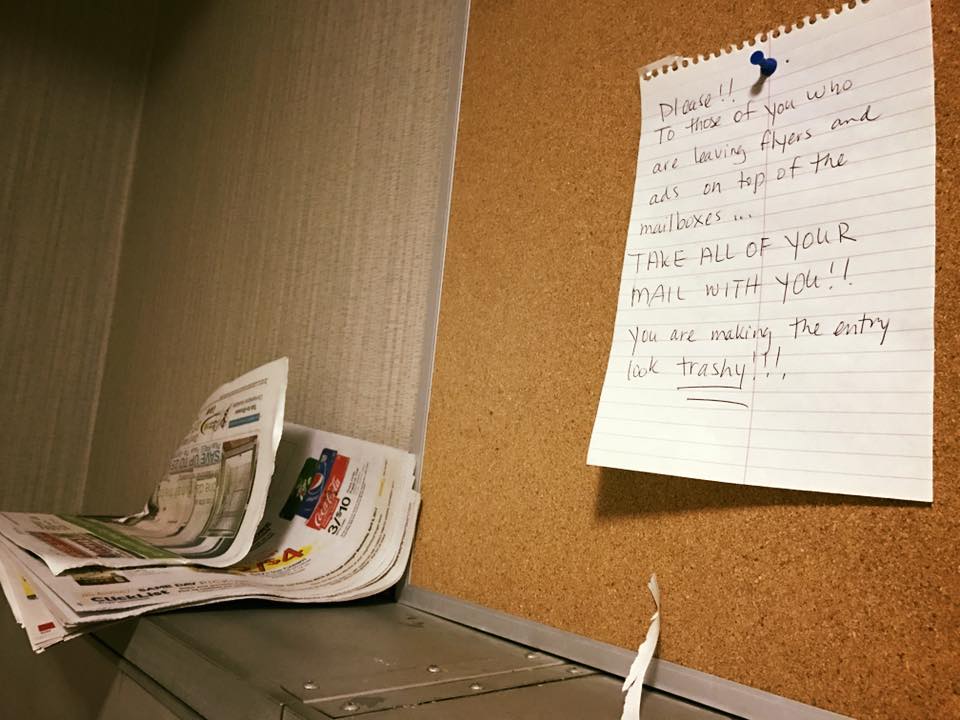 Please!!
To those of you who
are leaving flyers and
ads on top of the
mailboxes...
TAKE ALL OF YOUR
MAIL WITH YOU!!
You are making the entry
look trashy!!!
SAVE UP TO
pepsi
Coca-Cola
3/$10
$4
SAME DAY
ClickList